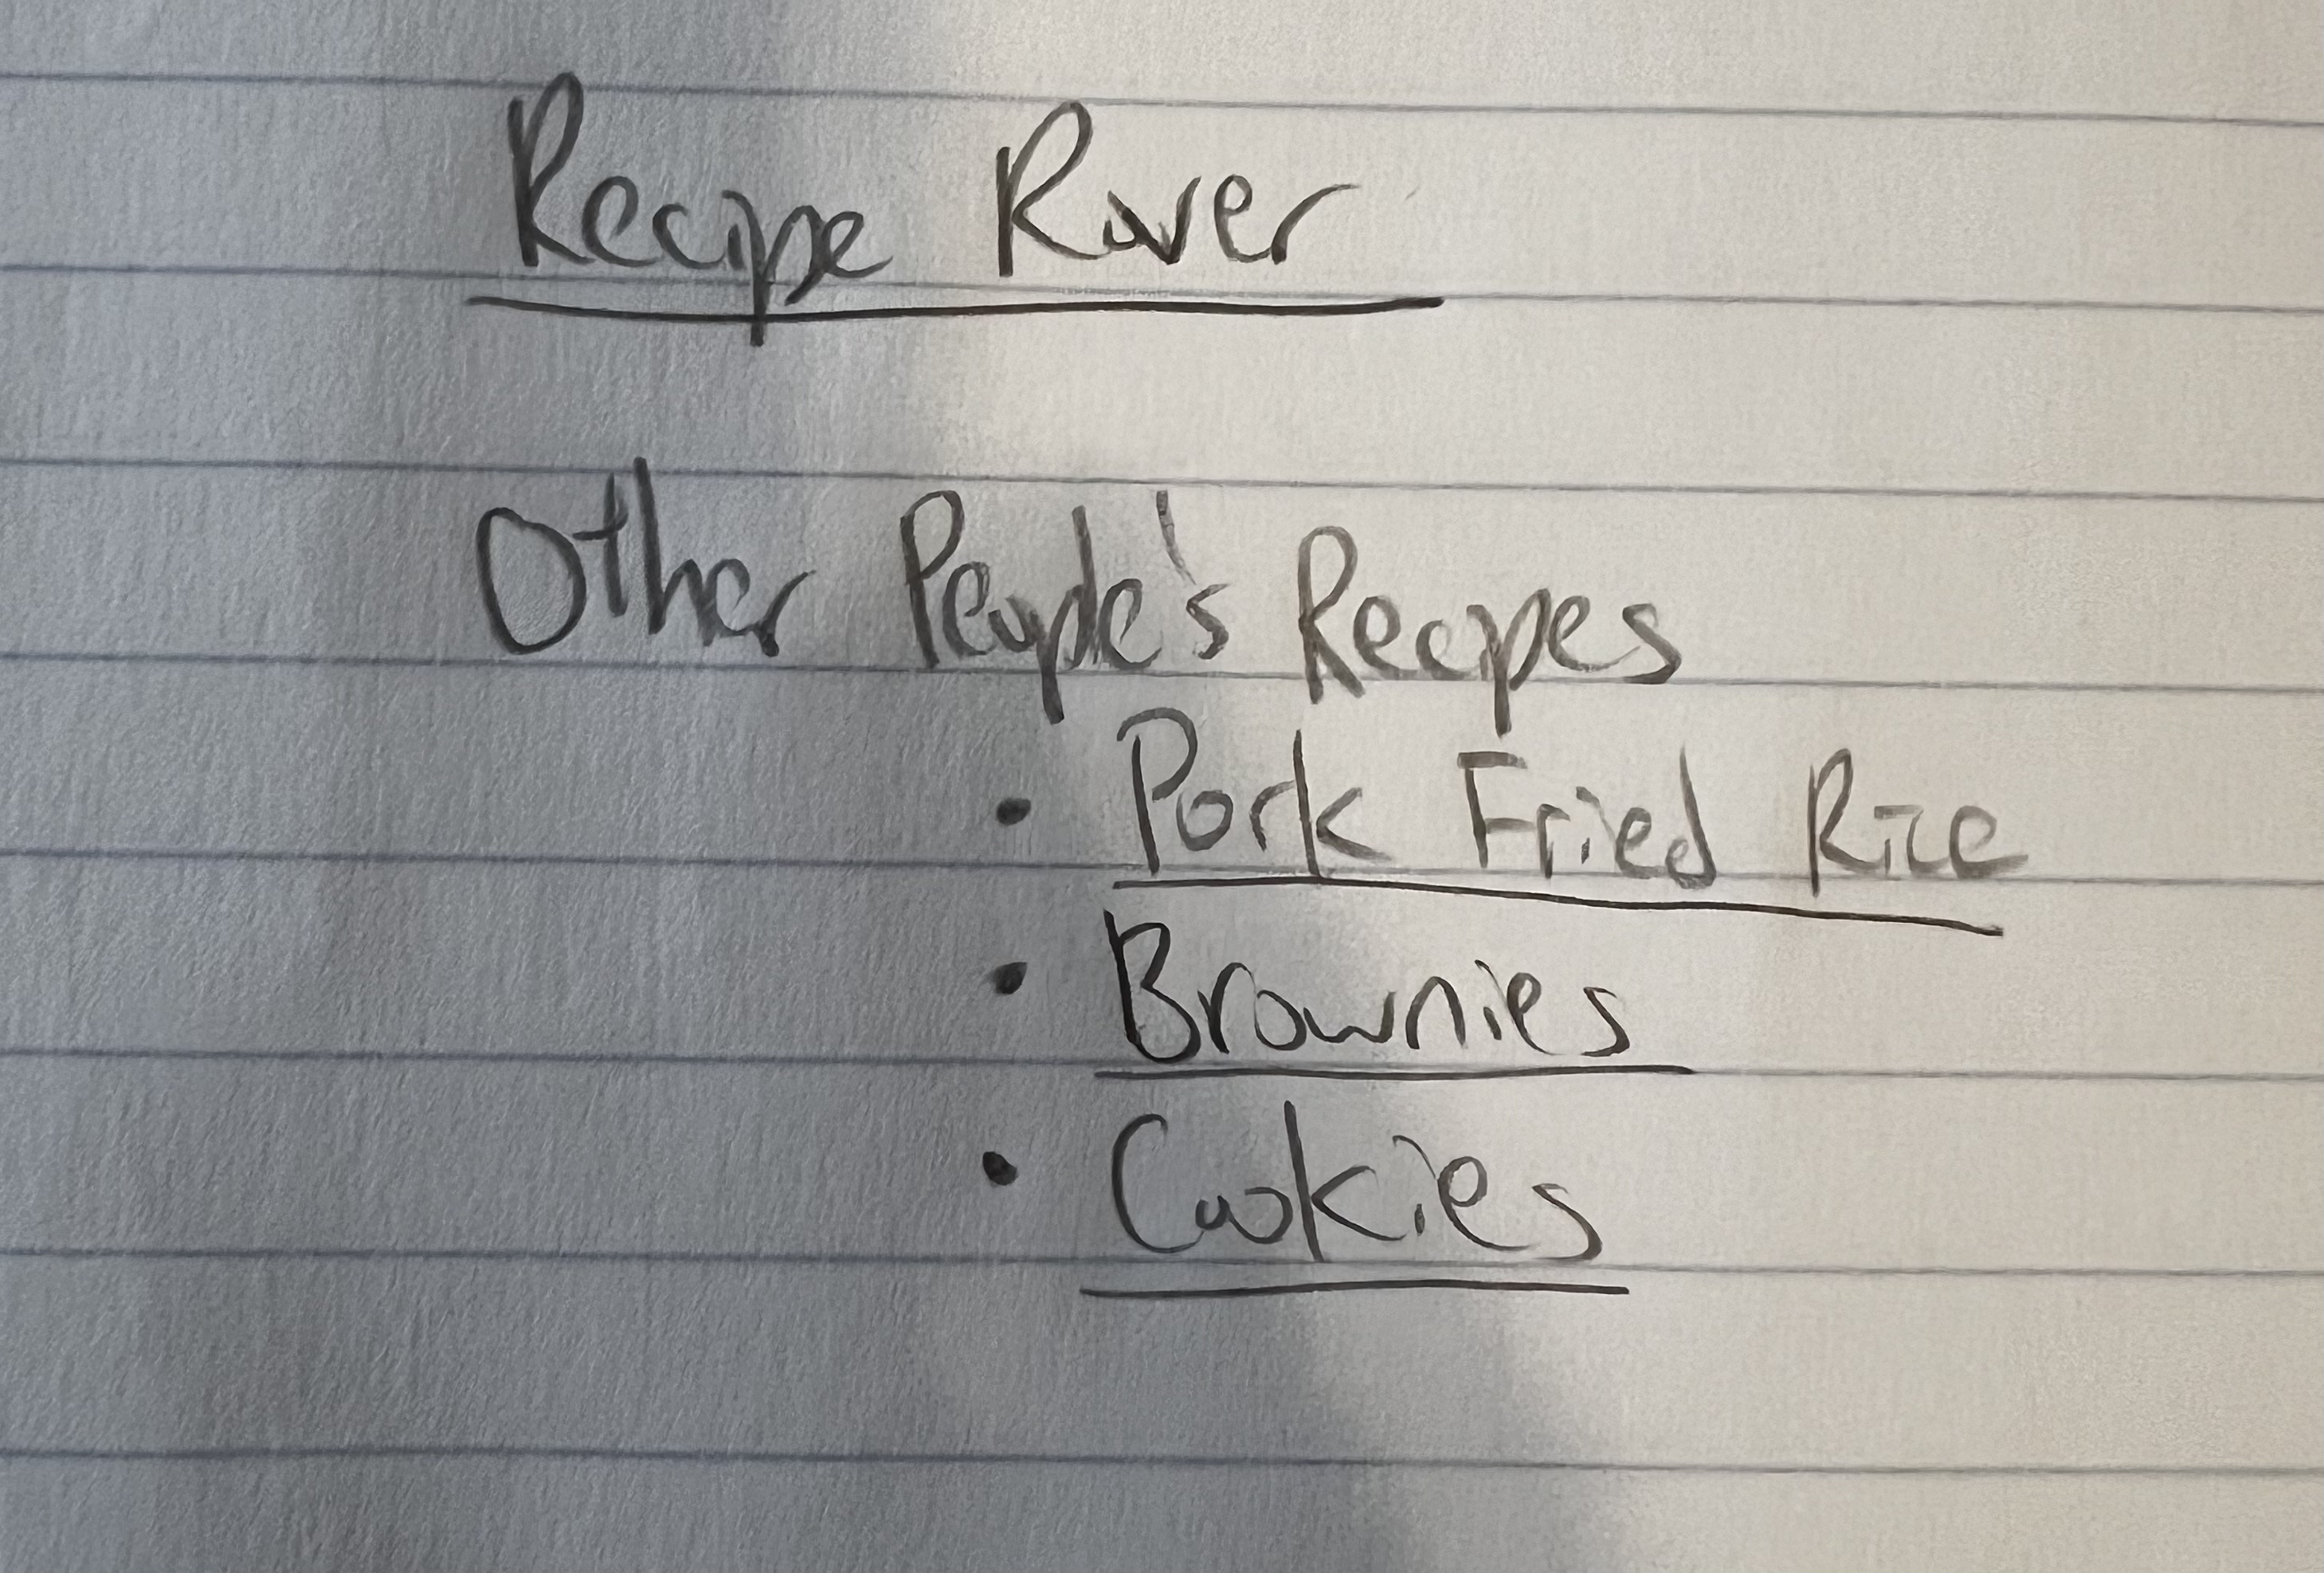 Recipe River
Other People's Recipes
• Pork Fried Rice
• Brownies
• Cookies